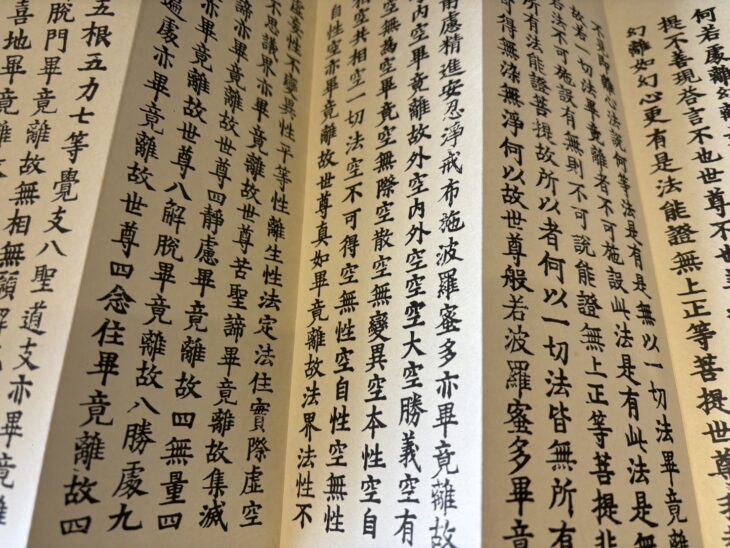 何若處離幻離
提不善現答言不也世尊不也
幻離如幻心更有是法能證無上正等菩提世尊我
不見即離心法說何等法是有是無以一切法畢竟離
故若一切法畢竟離者不可施設此法是有此法是無
若法不可施設有無則不可說能證無上正等菩提非
所有法能證菩提故所以者何以一切法皆無所有
得無染無淨何以故世尊般若波羅蜜多畢竟
慮精進安忍淨戒布施波羅蜜多亦畢竟離故
內空畢竟離故外空內外空空空大空勝義空有
空無為空畢竟空無際空散空無變異空本性空自
相空共相空一切法空不可得空無性空自性空無性
自性空亦畢竟離故世尊真如畢竟離故法界法性不
虛妄性不變異性平等性離生性法定法住實際虛空
不思議界亦畢竟離故世尊苦聖諦畢竟離故集滅
聖諦亦畢竟離故世尊四靜慮畢竟離故四無量四
亦畢竟離故世尊八解脫畢竟離故八勝處九
遍處亦畢竟離故世尊四念住畢竟離故四
五根五力七等覺支八聖道支亦畢竟離
脫門畢竟離故無相無願解
喜地畢竟離故